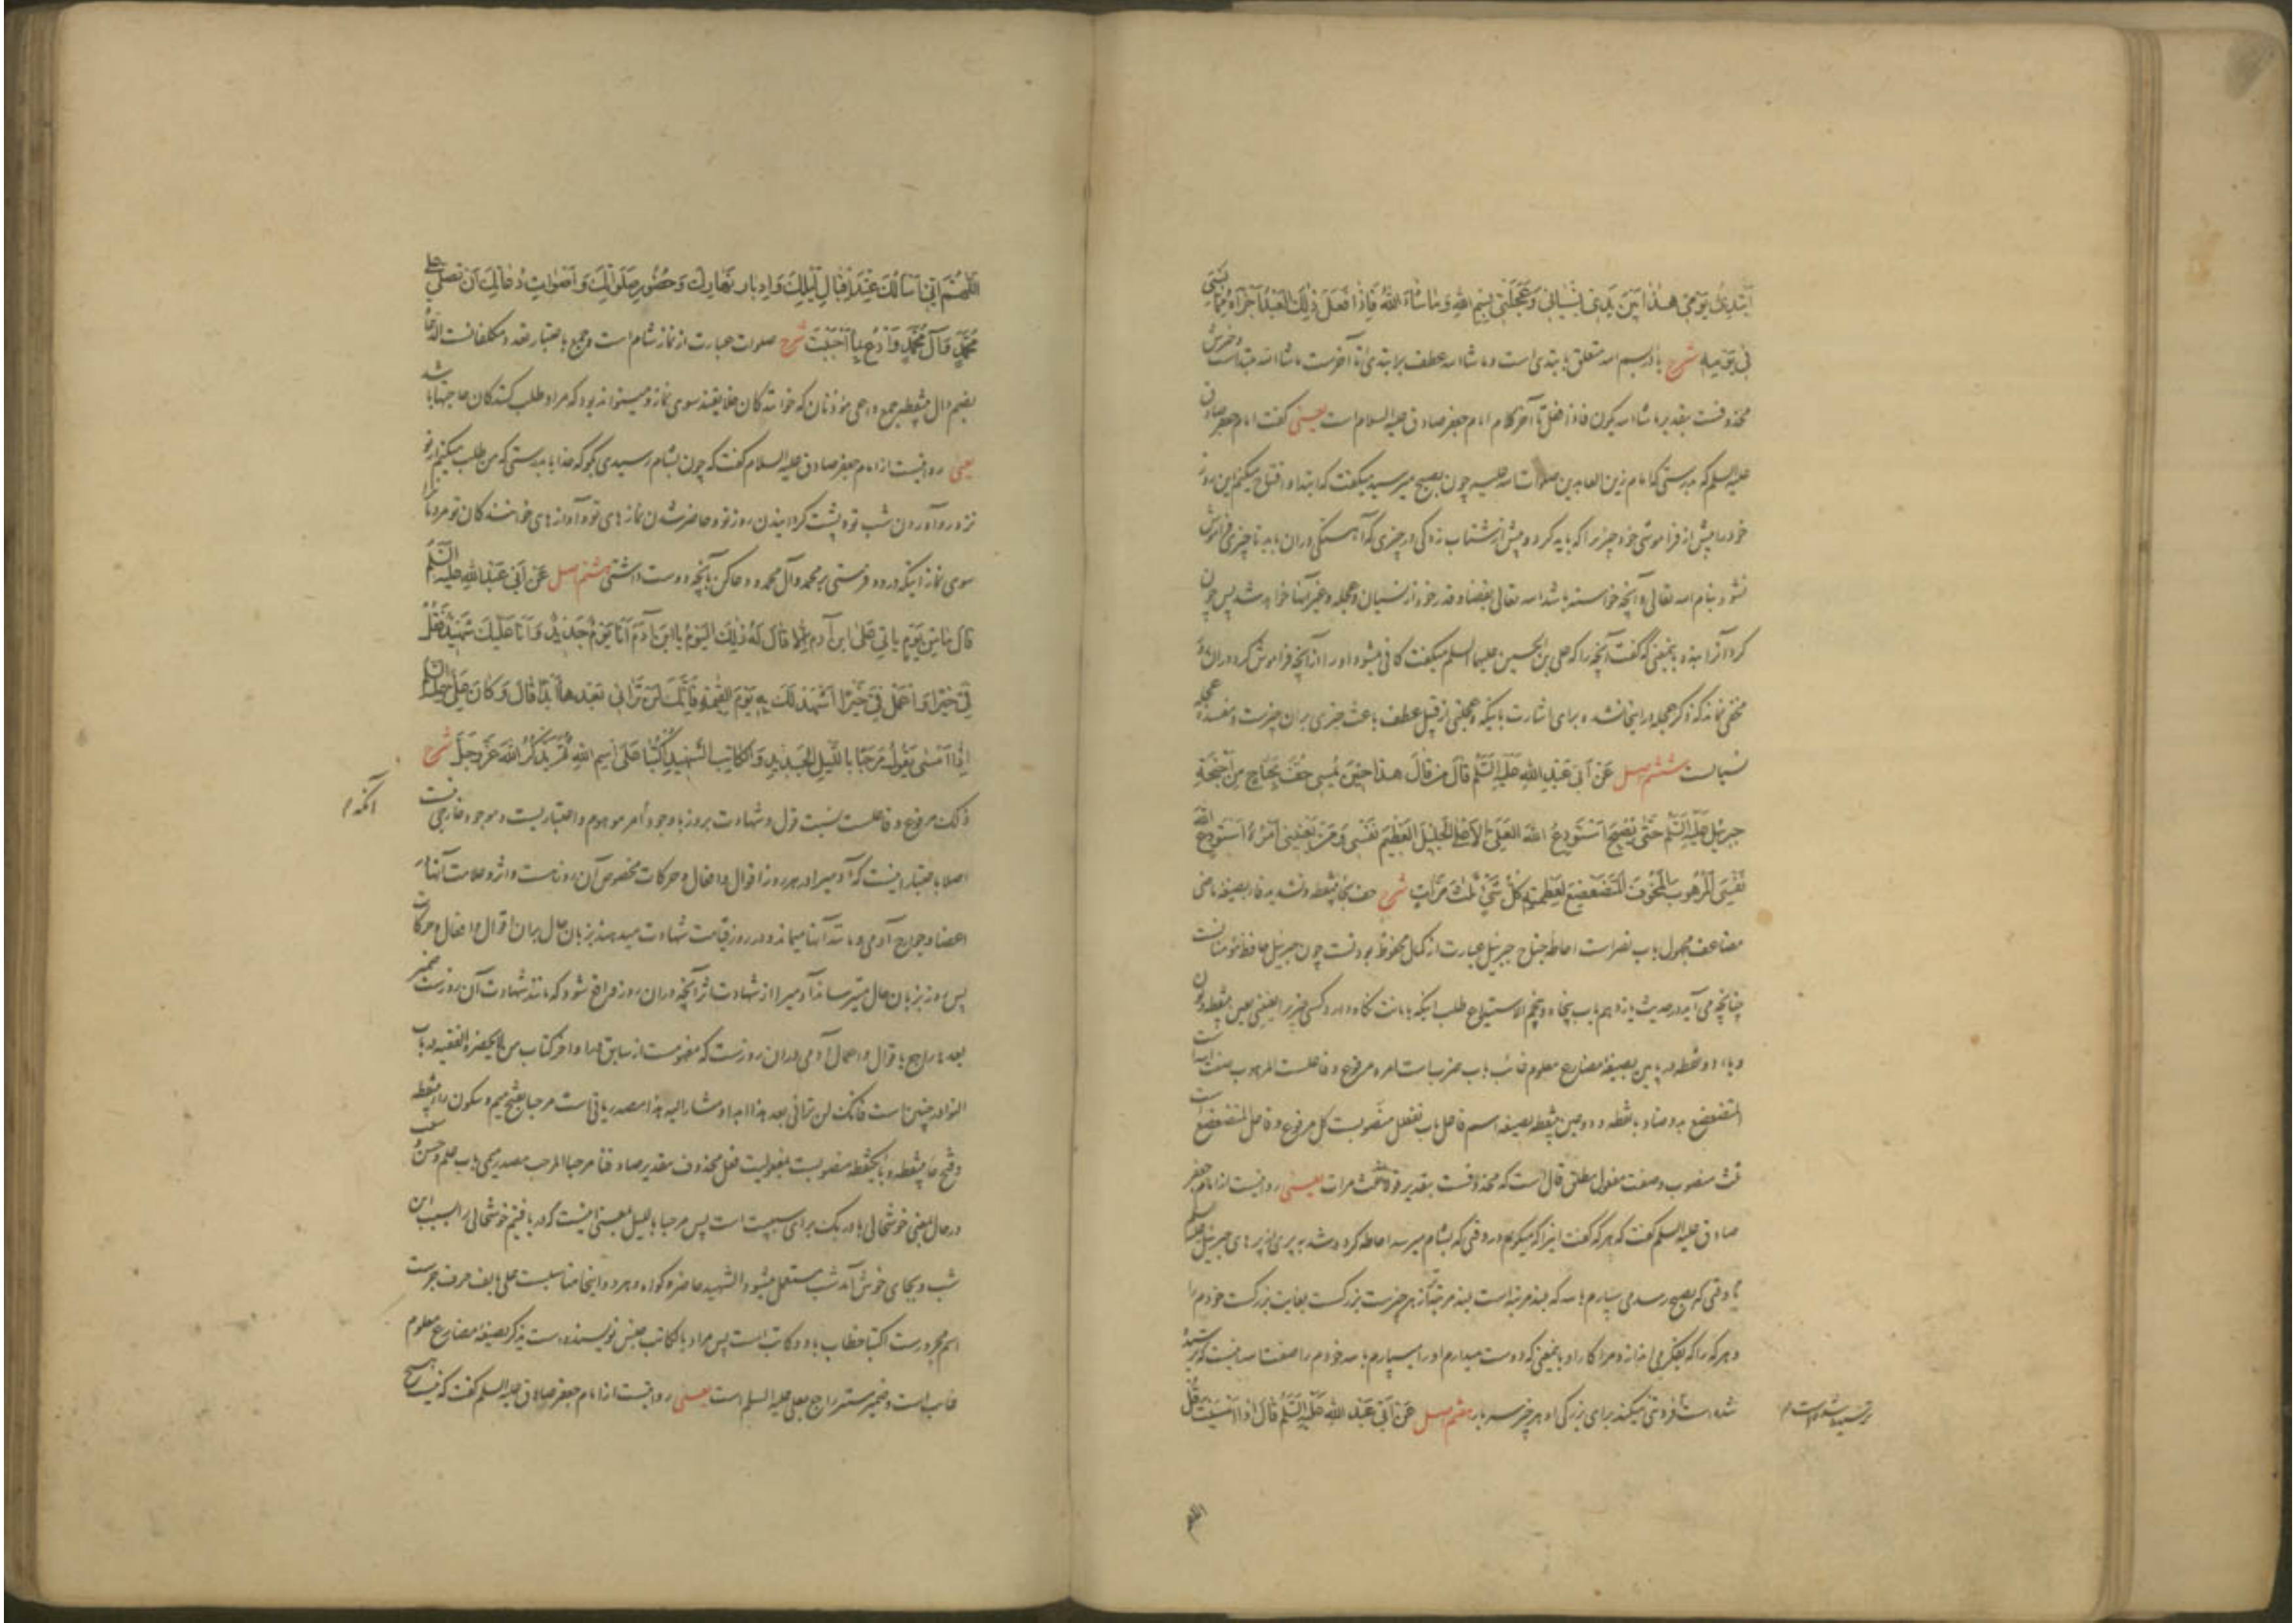 أبتدئ يومي هذا بين يدي نسياني وعجلتي بسم الله وما شاء الله فإذا فعل ذلك العبد أجزأه مما نسي
في يومه شرح باء در بسم الله متعلق بابتدی است و ما شاء الله عطف بر ابتدی تا آخرست ما شاء الله مبتداست و خبرش
محذوفست بتقدیر ما شاء الله یکون فاذا فعل تا آخر کلام امام جعفر صادق علیه السلام است یعنی گفت امام جعفر صادق
علیه السلم که بدرستی که امام زین العابدین صلوات الله علیه چون بصبح میرسید میگفت که ابتدا و افتتاح میکنم این روز
خود را پیش از فراموشی خود چیزیرا که باید کرد و پیش از شتاب زدگی در چیزی که آهستگی در آن باید تا چیزی فراموش
نشود بنام الله تعالی و آنچه خواسته باشد الله تعالی بقضا و قدر خود از نسیان و عجله و غیر آنها خواهد شد پس چون
کرد آنرا بنده بمعنی که گفت آنچه را که علی بن الحسین علیهما السلم میگفت کافی میشود او را از آنچه فراموش کرد در آن روز
مخفی نماند که ذکر عجله در اینجا نشده برای اشارت باینکه و عجلتی از قبیل عطف باعث چیزی بر آن چیزست و مفسده عجله
نسیانست ششم اصل عن أبي عبد الله عليه السلم قال من قال هذا حين يمسي حف بجناح من أجنحة
جبرئيل عليه السلم حتى يصبح أستودع الله العلي الأعلى الجليل العظيم نفسي ومن يعنيني أمره أستودع الله
نفسي المرهوب المخوف المتضعضع لعظمته كل شيء ثلث مرات شرح حف بحاء بینقطه و تشدید فاء بصیغه ماضی
مضاعف مجهول باب نصرست احاطه جناح جبرئیل عبارت از کمال محفوظ بودنست چون جبرئیل حافظ مؤمنانست
چنانچه می آید در حدیث یازدهم باب پنجاه و پنجم الاستیداع طلب اینکه بامانت نگاه دارد کسی چیزیرا یعنینی بعین بینقطه و نون
و یاء دو نقطه در پایین بصیغه مضارع معلوم غائب باب ضربست امره مرفوع و فاعلست المرهوب صفت الله است
المتضعضع بدو ضاد بانقطه و دو عین بینقطه بصیغه اسم فاعل باب تفعلل منصوبست کل مرفوع و فاعل المتضعضع است
ثلث منصوب و صفت مفعول مطلق قال است که محذوفست بتقدیر قولا ثلث مرات یعنی روایتست از امام جعفر
صادق علیه السلم گفت که هر که گفت اینرا که میگویم در وقتی که بشام میرسد احاطه کرده شد بپری از پرهای جبرئیل علیه السلم
تا وقتی که بصبح رسد می سپارم بالله که بلند مرتبه است بلند مرتبه تر از هر چیزست بزرگست بغایت بزرگست خودم را
و هر که را که بفکر می اندازد مرا کار او بمعنی که دوست میدارم او را میسپارم بالله خودم را صفت الله اینست که ترسیده
شده است فروتنی میکند برای بزرگی او هر چیز سه بار هفتم اصل عن أبي عبد الله عليه السلم قال إذا أمسيت قل
اللهم
اللهم إني أسألك عند إقبال ليلك وإدبار نهارك وحضور صلواتك وأصوات دعاتك أن تصلي على
محمد وآل محمد وادع بما أحببت شرح صلوات عبارت از نماز شام است و جمع باعتبار تعدد مکلفانست الدعاة
بضم دال بینقطه جمع داعی مؤذنان که خوانندگان خلایقند سوی نماز و میتواند بود که مراد طلب کنندگان حاجتها باشد
یعنی روایتست از امام جعفر صادق علیه السلام گفت که چون بشام رسیدی بگو که خدایا بدرستی که من طلب میکنم از تو
نزد رو آوردن شب تو و پشت گردانیدن روز تو و حاضر شدن نمازهای تو و آوازهای خوانندگان تو مردمانرا
سوی نماز اینکه درود فرستی بر محمد و آل محمد و دعا کن بآنچه دوست داشتی هشتم اصل عن أبي عبد الله عليه السلم
قال ما من يوم يأتي على ابن آدم إلا قال له ذلك اليوم يا ابن آدم أنا يوم جديد وأنا عليك شهيد فقل
في خيرا واعمل في خيرا أشهد لك به يوم القيمة فإنك لن تراني بعدها أبدا قال وكان علي عليه السلم
إذا أمسى يقول مرحبا بالليل الجديد والكاتب الشهيد اكتبا على اسم الله ثم يذكر الله عز وجل شرح
ذلک مرفوع و فاعلست نسبت قول و شهادت بروز با وجود آنکه امر موهوم و اعتباریست و موجود خارجی نیست
اصلا باعتبار اینست که آدمیرا در هر روز اقوال و افعال و حرکات مخصوص آن روزست و اثر و علامت آنها در
اعضا و جوارح آدمی و مانند آنها میماند و در روز قیامت شهادت میدهند بزبان حال بر آن اقوال و افعال و حرکات
پس روز بزبان حال میترساند آدمیرا از شهادت اثر آنچه در آن روز واقع شود که مانند شهادت آن روزست ضمیر
بعدها راجع باقوال و اعمال آدمی در آن روزست که مفهومست از سابق و در اواخر کتاب من لا یحضره الفقیه در باب
النوادر چنین است فانک لن ترانی بعد هذا ابدا و مشار الیه هذا مصدر یاتی است مرحبا بفتح میم و سکون راء بینقطه
و فتح حاء بینقطه و باء یکنقطه منصوبست بمفعولیت فعل محذوف بتقدیر صادفنا مرحبا المرحب مصدر میمی باب علم و حسن
در حال بمعنی خوشحالی باء در بک برای سببیت است پس مرحبا باللیل بمعنی اینست که دریافتیم خوشحالی را بسبب این
شب و بجای خوش آمد شب مستعمل میشود الشهید حاضر و گواه و هر دو اینجا مناسبست علی بالف حرف جرست
اسم مجرورست اکتبا خطاب با دو کاتب است پس مراد بالکاتب جنس نویسنده است یذکر بصیغه مضارع معلوم
غایب است و ضمیر مستتر راجع بعلی علیه السلم است یعنی روایتست از امام جعفر صادق علیه السلم گفت که نیست هیچ